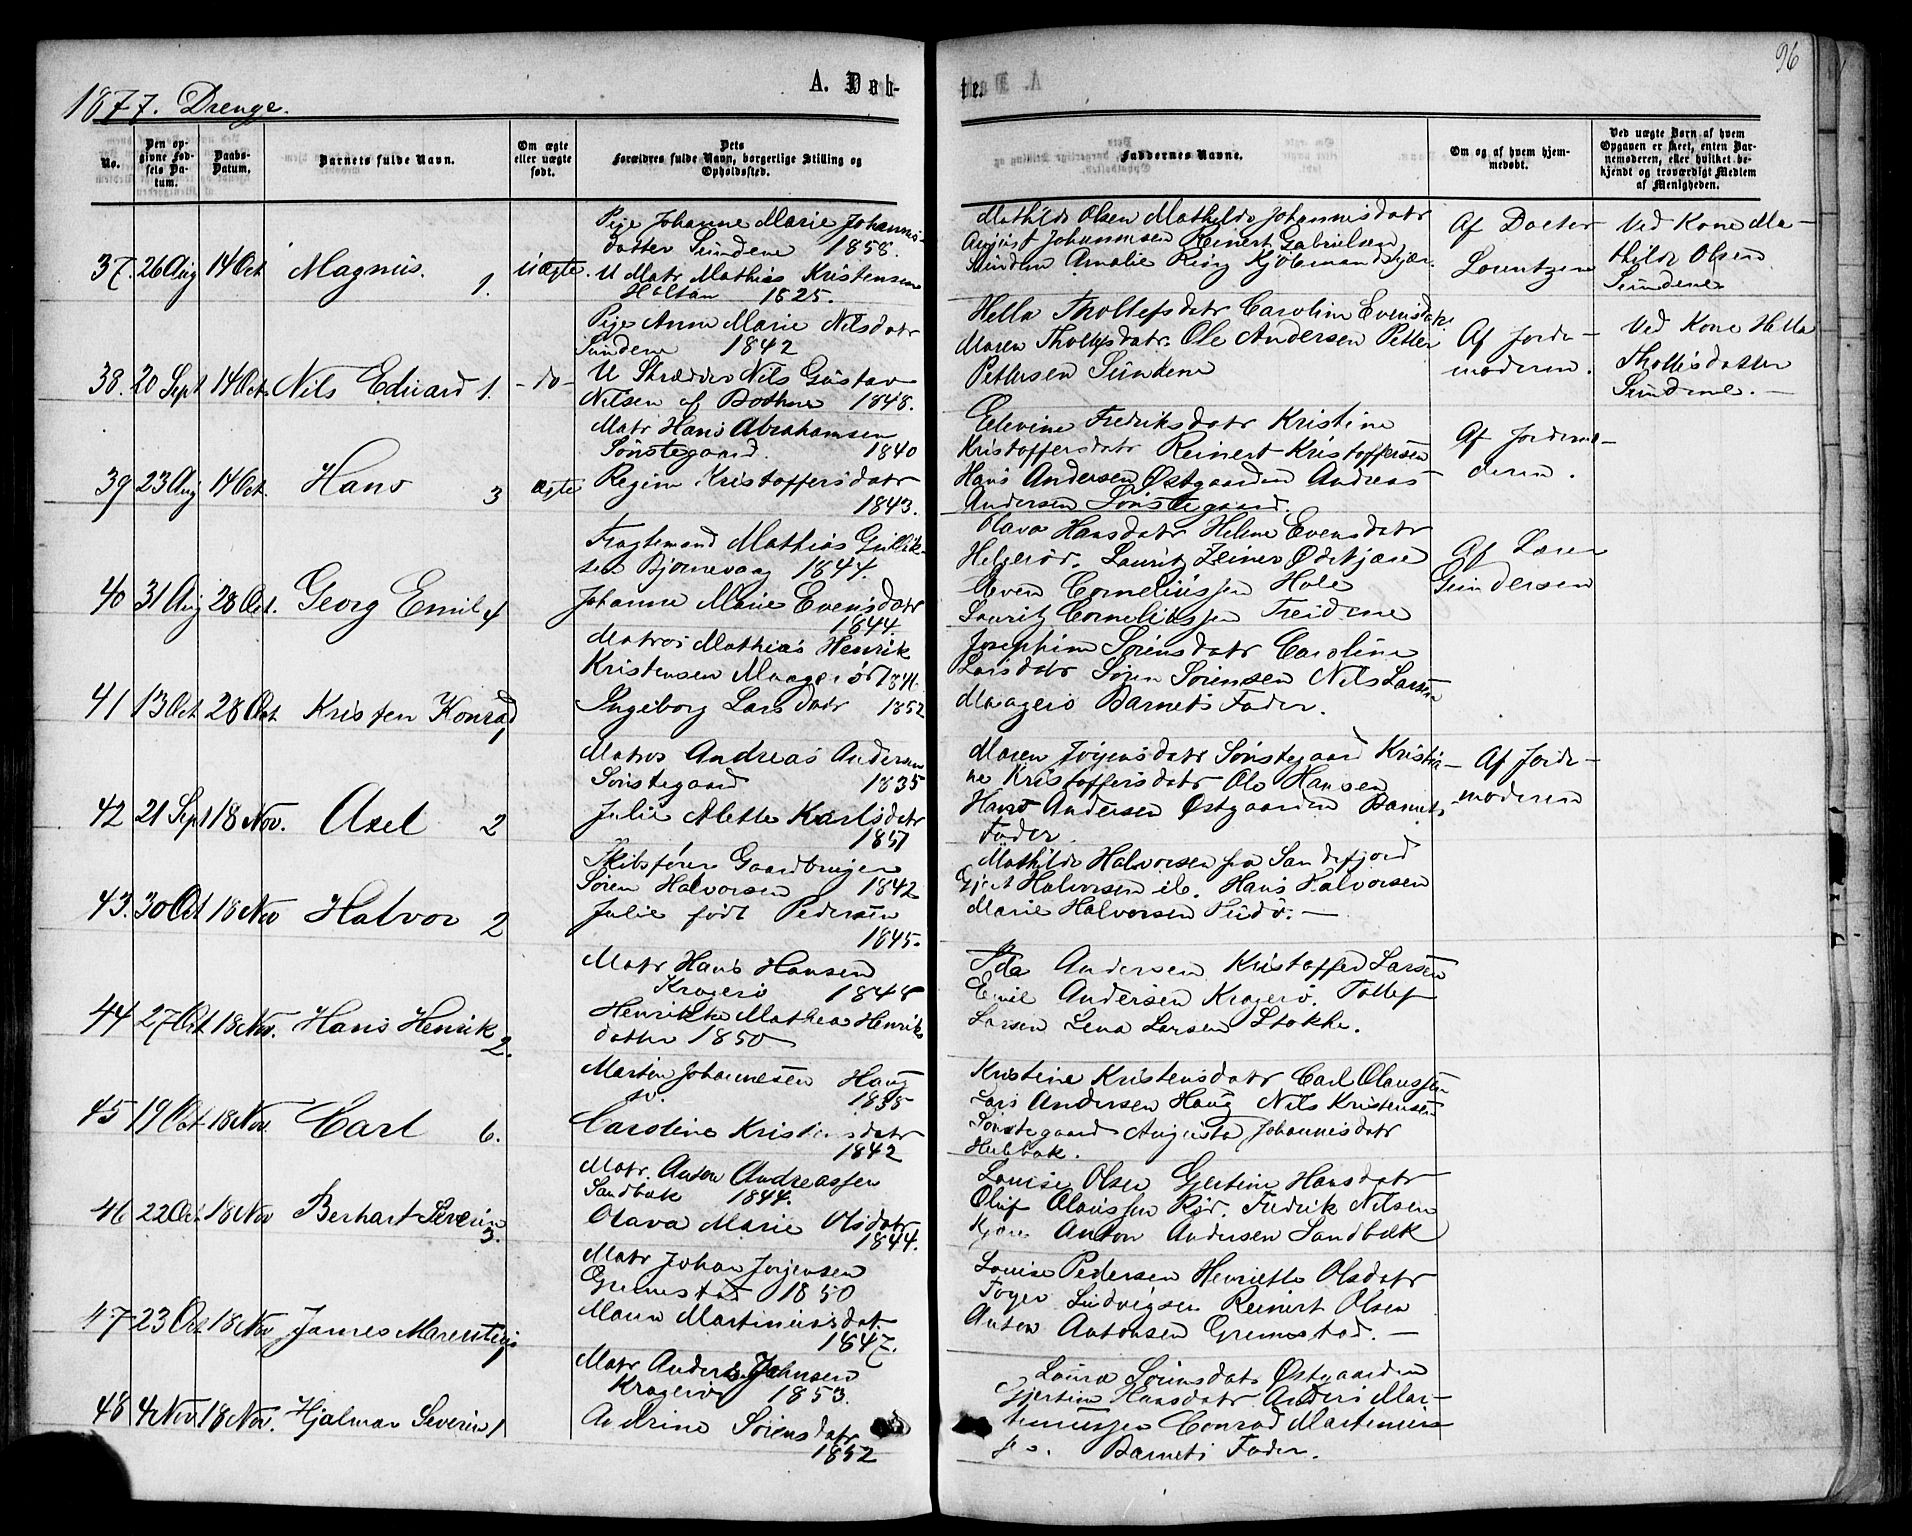 1877. Drenge.
A. Døb-
No.
Den opgivne Fødsels Datum.
Daabs-Datum.
Barnets fulde Navn.
Om ægte eller uægte født.
Dets Forældres fulde Navn, borgerlige Stilling og Opholdssted.
37. 26 Aug 14 Oct Magnus. 1. Uægte.
Pige Johanne Marie Johannis-
datter Sundene 1858.
U Matr Mathias Kristensen
Holtan 1825.
38. 20 Sept 14 Oct Nils Edvard 1. -do-
Pige Anne Marie Nilsdatr
Sundene 1842
U Skrædder Nils Gustav
Nilsen af Bothne 1848.
39 23 Aug 14 Oct. Hans 3 ægte
Matr Hans Abrahamsen
Sønstegaard. 1840
Regine Kristoffersdatr
1843.
40 31 Aug 28 Oct. Georg Emil 4
Fragtemand Mathias Gullik-
sen Bjørnevaag 1844.
Johanne Marie Evensdatr
1844.
41 13 Oct 28 Oct Kristen Konrad 1
Matros Mathias Henrik
Kristensen Maagerø 1846
Ingeborg Larsdatr 1852
42 21 Sept 18 Nov. Axel 2
Matros Andreas Andersen
Sønstegaard 1835
Julie Alette Karlsdatr
1851
43. 30 Oct 18 Nov Halvor 2
Skibsfører Gaardbruger
Søren Halvorsen 1842
Julie født Pedersen
1845.
44 27 Oct. 18 Nov. Hans Henrik 2.
Matr Hans Hansen
Kragerø 1848
Henrikke Mathea Henriks
datter 1850
45 19 Oct. 18 Nov. Carl 6.
Martin Johannesen Haug
1835
Caroline Kristensdatr
1842
46 22 Oct. 18 Nov Berhart Severin 3.
Matr. Anton Andreassen
Sandbæk 1844.
Olava Marie Olsdatr
1844.
47 23 Oct 18 Nov James Marentius 1
Matr Johan Jørgensen
Gremestad 1850
Maren Martiniusdat.
1847.
48 4 Nov. 18 Nov. Hjalmar Severin 1
Matr Anders Johnsen
Kragerø 1853.
Andrine Sørensdatr
1852
96
te.
Faddernes Navne.
Om og af hvem hjemmedøbt.
Ved uægte Børn af hvem Opgaven er skeet, enten Barnemoderen, eller hvilket bekjendt og troværdigt Medlem af Menigheden.
Mathilde Olsen Mathilde Johannisdatr
August Johannesen Reinert Gabrielsen
Sundene Amalie Ring Kjøbmandskjær.
Af Docter
Lorentzen
Ved Kone Ma-
thilde Olsen
Sundene
Hella Thollefsdatr Caroline Evensdatr
Maren Thollefsdatr. Ole Andersen Petter
Pettersen Sundene
Af Jorde-
moderen.
Ved Kone Hella
Thollefsdatter
Sundene. -
Edevine Fredriksdatr Kristine
Kristoffersdatr Reinert Kristoffersen
Hans Andersen Østgaarden Andreas
Andersen Sønstegaard.
Af Jordemo-
deren.
Olava Hansdatr Helene Evensdatr
Helgerød. Lauritz Zeiner Ødekjære
Even Corneliussen Hole
Lauritz Corneliussen Treidene
Af Lærer
Gundersen
Josephine Sørensdatr Caroline
Larsdatr Søren Sørensen Nils Larsen
Maagerø Barnets Fader.
Maren Jørgensdatr Sønstegaard Kristia-
ne Kristoffersdatr Ole Hansen
Hans Andersen Østgaarden Barnets
Fader.
Af Jorde-
moderen
Mathilde Halvorsen fra Sandefjord
Gjert Halvorsen ib. Hans Halvorsen
Marie Halvorsen -
Ida Andersen Kristoffer Larsen
Emil Andersen Kragerø. Tollef
Larsen Lena Larsen Stokke.
Kristine Kristensdatr Carl Olaussen
Lars Andersen Haug Nils Kristensen
Sønstegaard Augusta Johannisdatr
Hulebak.
Louise Olsen Gjertine Hansdatr
Oluf Olaussen Rør. Fredrik Nilsen
Kjære Anton Andersen Sandbæk
Louise Pedersen Henriette Olsdatr
Ludvigsen Reinert Olsen
Anton Antonsen Gremestad. -
Laura Sørensdatr Østgaarden
Gjertine Hansdatr Anders Mar-
teniussen Conrad Martenius-
sen. Barnets Fader.